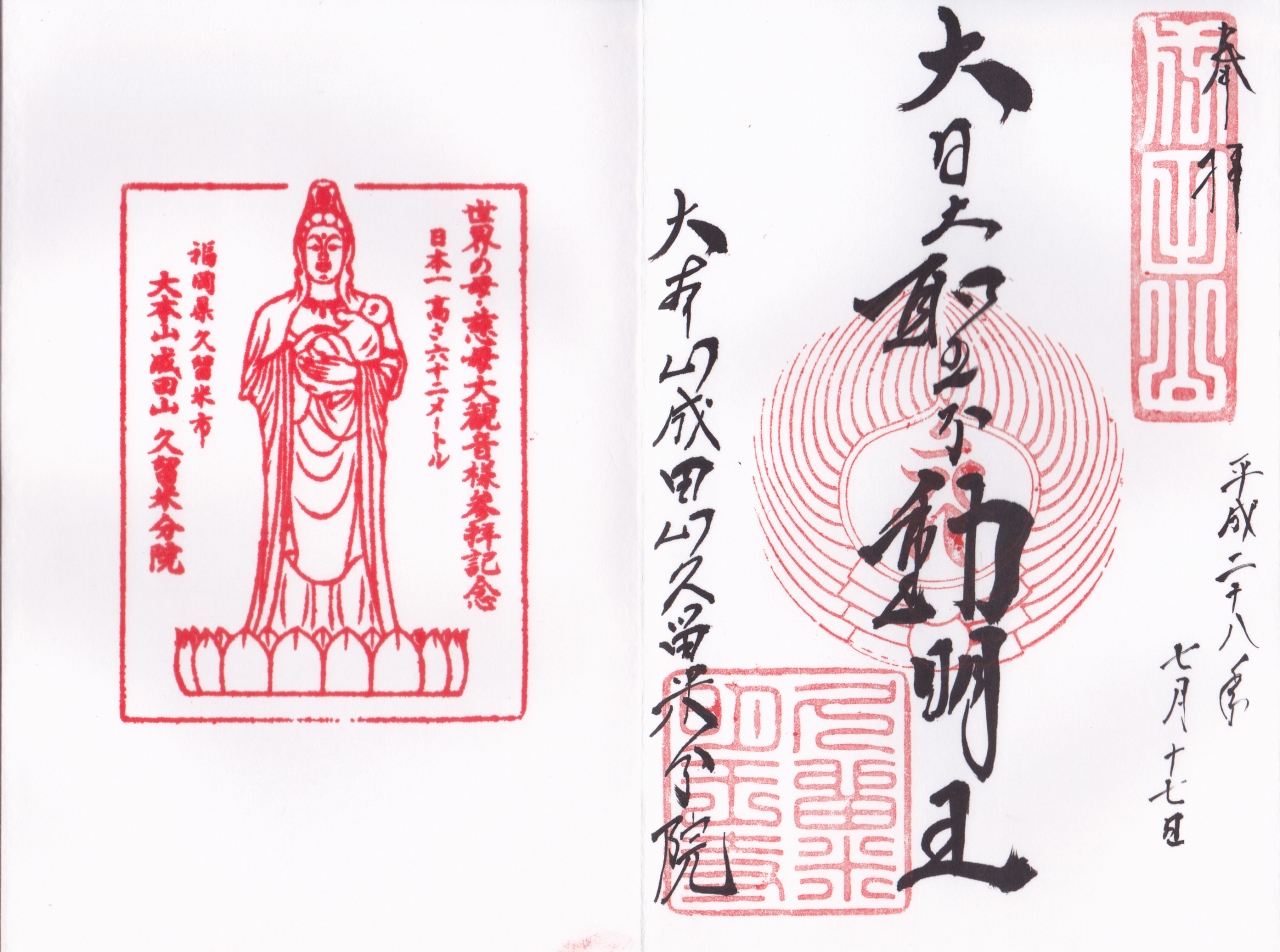 奉拝
成田山
平成二十八年
七月十七日
大日大聖不動明王
大本山成田山久留米分院
久留米
世界の母・慈母大観音様参拝記念
日本一 高さ六十二メートル
福岡県久留米市
大本山成田山 久留米分院